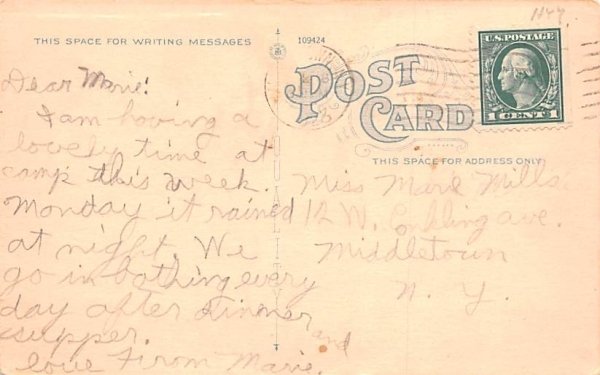 THIS SPACE FOR WRITING MESSAGES
109424
POST
CARD
THIS SPACE FOR ADDRESS ONLY
U.S. POSTAGE
1 CENT 1
Dear Marie!
I am having a
lovely time at
camp this week.
Monday it rained
at night. We
go in bathing every
day after dinner and
supper.
love From Marie.
Miss Marie Mills
12 W. Conkling ave.
Middletown
N. Y.